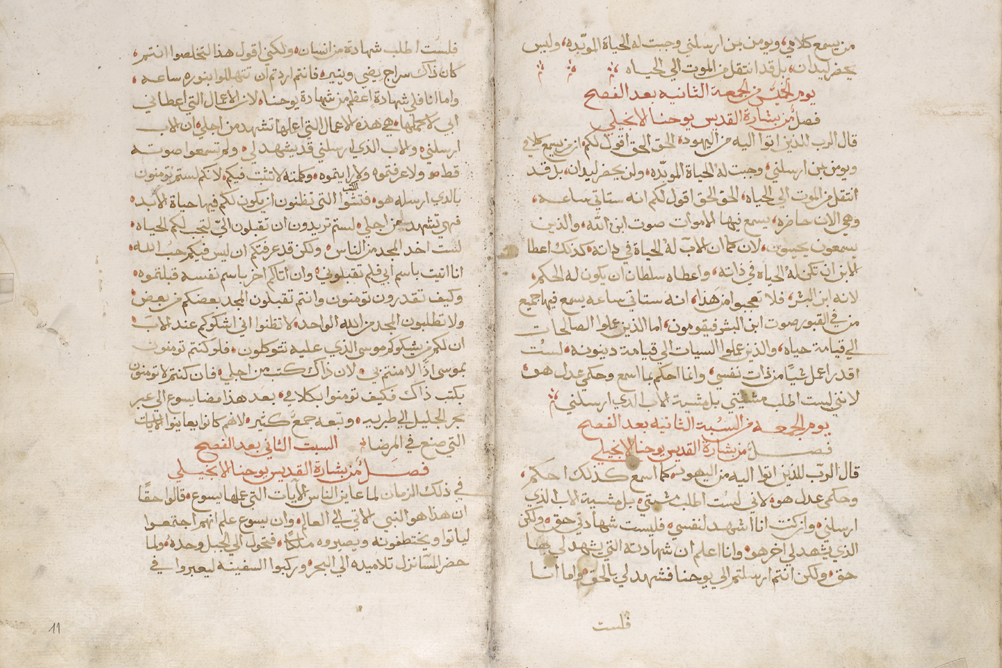 من يسمع كلامي ويومن بمن ارسلني وجبت له الحياة الموبده وليس
يحضر ليدان بل قد انتقل من الموت الي الحياه
يوم الخميس من الجمعة الثانيه بعد الفصح
فصل من بشارة القديس يوحنا الانجيلي
قال الرب للذين اتوا اليه من اليهود الحق الحق اقول لكم ان من يسمع كلامي
ويومن بمن ارسلني وجبت له الحياة الموبده ولن يحضر ليدان بل قد
انتقل من الموت الي الحياه الحق الحق اقول لكم انه ستاتي ساعه
وهي الان حاضره يسمع فيها الاموات صوت ابن الله والذين
يسمعون يحييون لان كما ان الاب له الحياة في ذاته كذلك اعطا
الابن ان تكون له الحياة في ذاته واعطاه سلطان ان يكون له الحكم
لانه ابن البشر فلا تعجبوا من هذا انه ستاتي ساعه يسمع فيها جميع
من في القبور صوت ابن البشر فيقومون اما الذين عملوا الصالحات
الي قيامة حياه والذين عملوا السيات الي قيامة دينونه لست
اقدر اعمل شيا من ذات نفسي وانما احكم بما اسمع وحكمي عدل هو
لاني لست اطلب مشيتي بل مشية الاب الذي ارسلني
يوم الجمعه من السبة الثانيه بعد الفصح
فصل من بشارة القديس يوحنا الانجيلي
قال الرب للذين اتوا اليه من اليهود كما اسمع كذلك احكم
وحكمي عدل هو لاني لست اطلب مشيتي بل مشية الاب الذي
ارسلني وان كنت انا اشهد لنفسي فليست شهادتي حق ولكن
الذي يشهد لي اخر هو وانا اعلم ان شهادته التي يشهد لي بها
حق ولكن انتم ارسلتم الي يوحنا فشهد لي بالحق واما انا
فلست
فلست اطلب شهادة من انسان ولكني اقول هذا لتخلصوا انتم
كان ذاك سراج يضي وينير فانتم اردتم ان تتهللوا بنوره ساعه
واما انا فلي شهادة اعظم من شهادة يوحنا لان الاعمال التي اعطاني
ابي لاكملها هي هذه الاعمال التي اعملها تشهد من اجلي ان الاب
ارسلني والاب الذي ارسلني قد يشهد لي ولم تسمعوا صوته
قط ولا عرفتموه ولا رايتموه وكلمته لا تثبت فيكم لانكم لستم تومنون
بالذي ارسله هو فتشوا الكتب التي تظنون ان يكون لكم فيها حياة الابد
فهي تشهد من اجلي لستم تريدون ان تقبلون الي لتجب لكم الحياه
لست اخذ المجد من الناس ولكن قد عرفتكم ان ليس فيكم حب الله
انا اتيت باسم ابي فلم تقبلوني وان اتاكم اخر باسم نفسه قبلتموه
وكيف تقدرون تومنون وانتم تقبلون المجد بعضكم من بعض
ولا تطلبون المجد من الله الواحد لا تظنوا اني اشكوكم عند الاب
ان لكم من يشكوكم موسي الذي عليه تتوكلون فلو كنتم تومنون
بموسي اذاً لامنتم بي لان ذاك كتب من اجلي فان كنتم لا تومنون
بكتب ذاك فكيف تومنوا بكلامي بعد هذا مضا يسوع الي عبر
بحر الجليل الي طبريه وتبعه جمع كثير لانهم كانوا يعاينوا الايات
التي صنع في المرضا السبت الثاني بعد الفصح
فصل من بشارة القديس يوحنا الانجيلي
في ذلك الزمان لما عاين الناس الايات التي عملها يسوع قالوا حقا
ان هذا هو النبي الاتي الي العالم وان يسوع علم انهم اجتمعوا
لياتوا ويختطفونه ويصيروه ملكا فتحول الي الجبل وحده ولما
حضر المسا نزل تلاميذه الي البحر وركبوا السفينه ليعبروا في
11